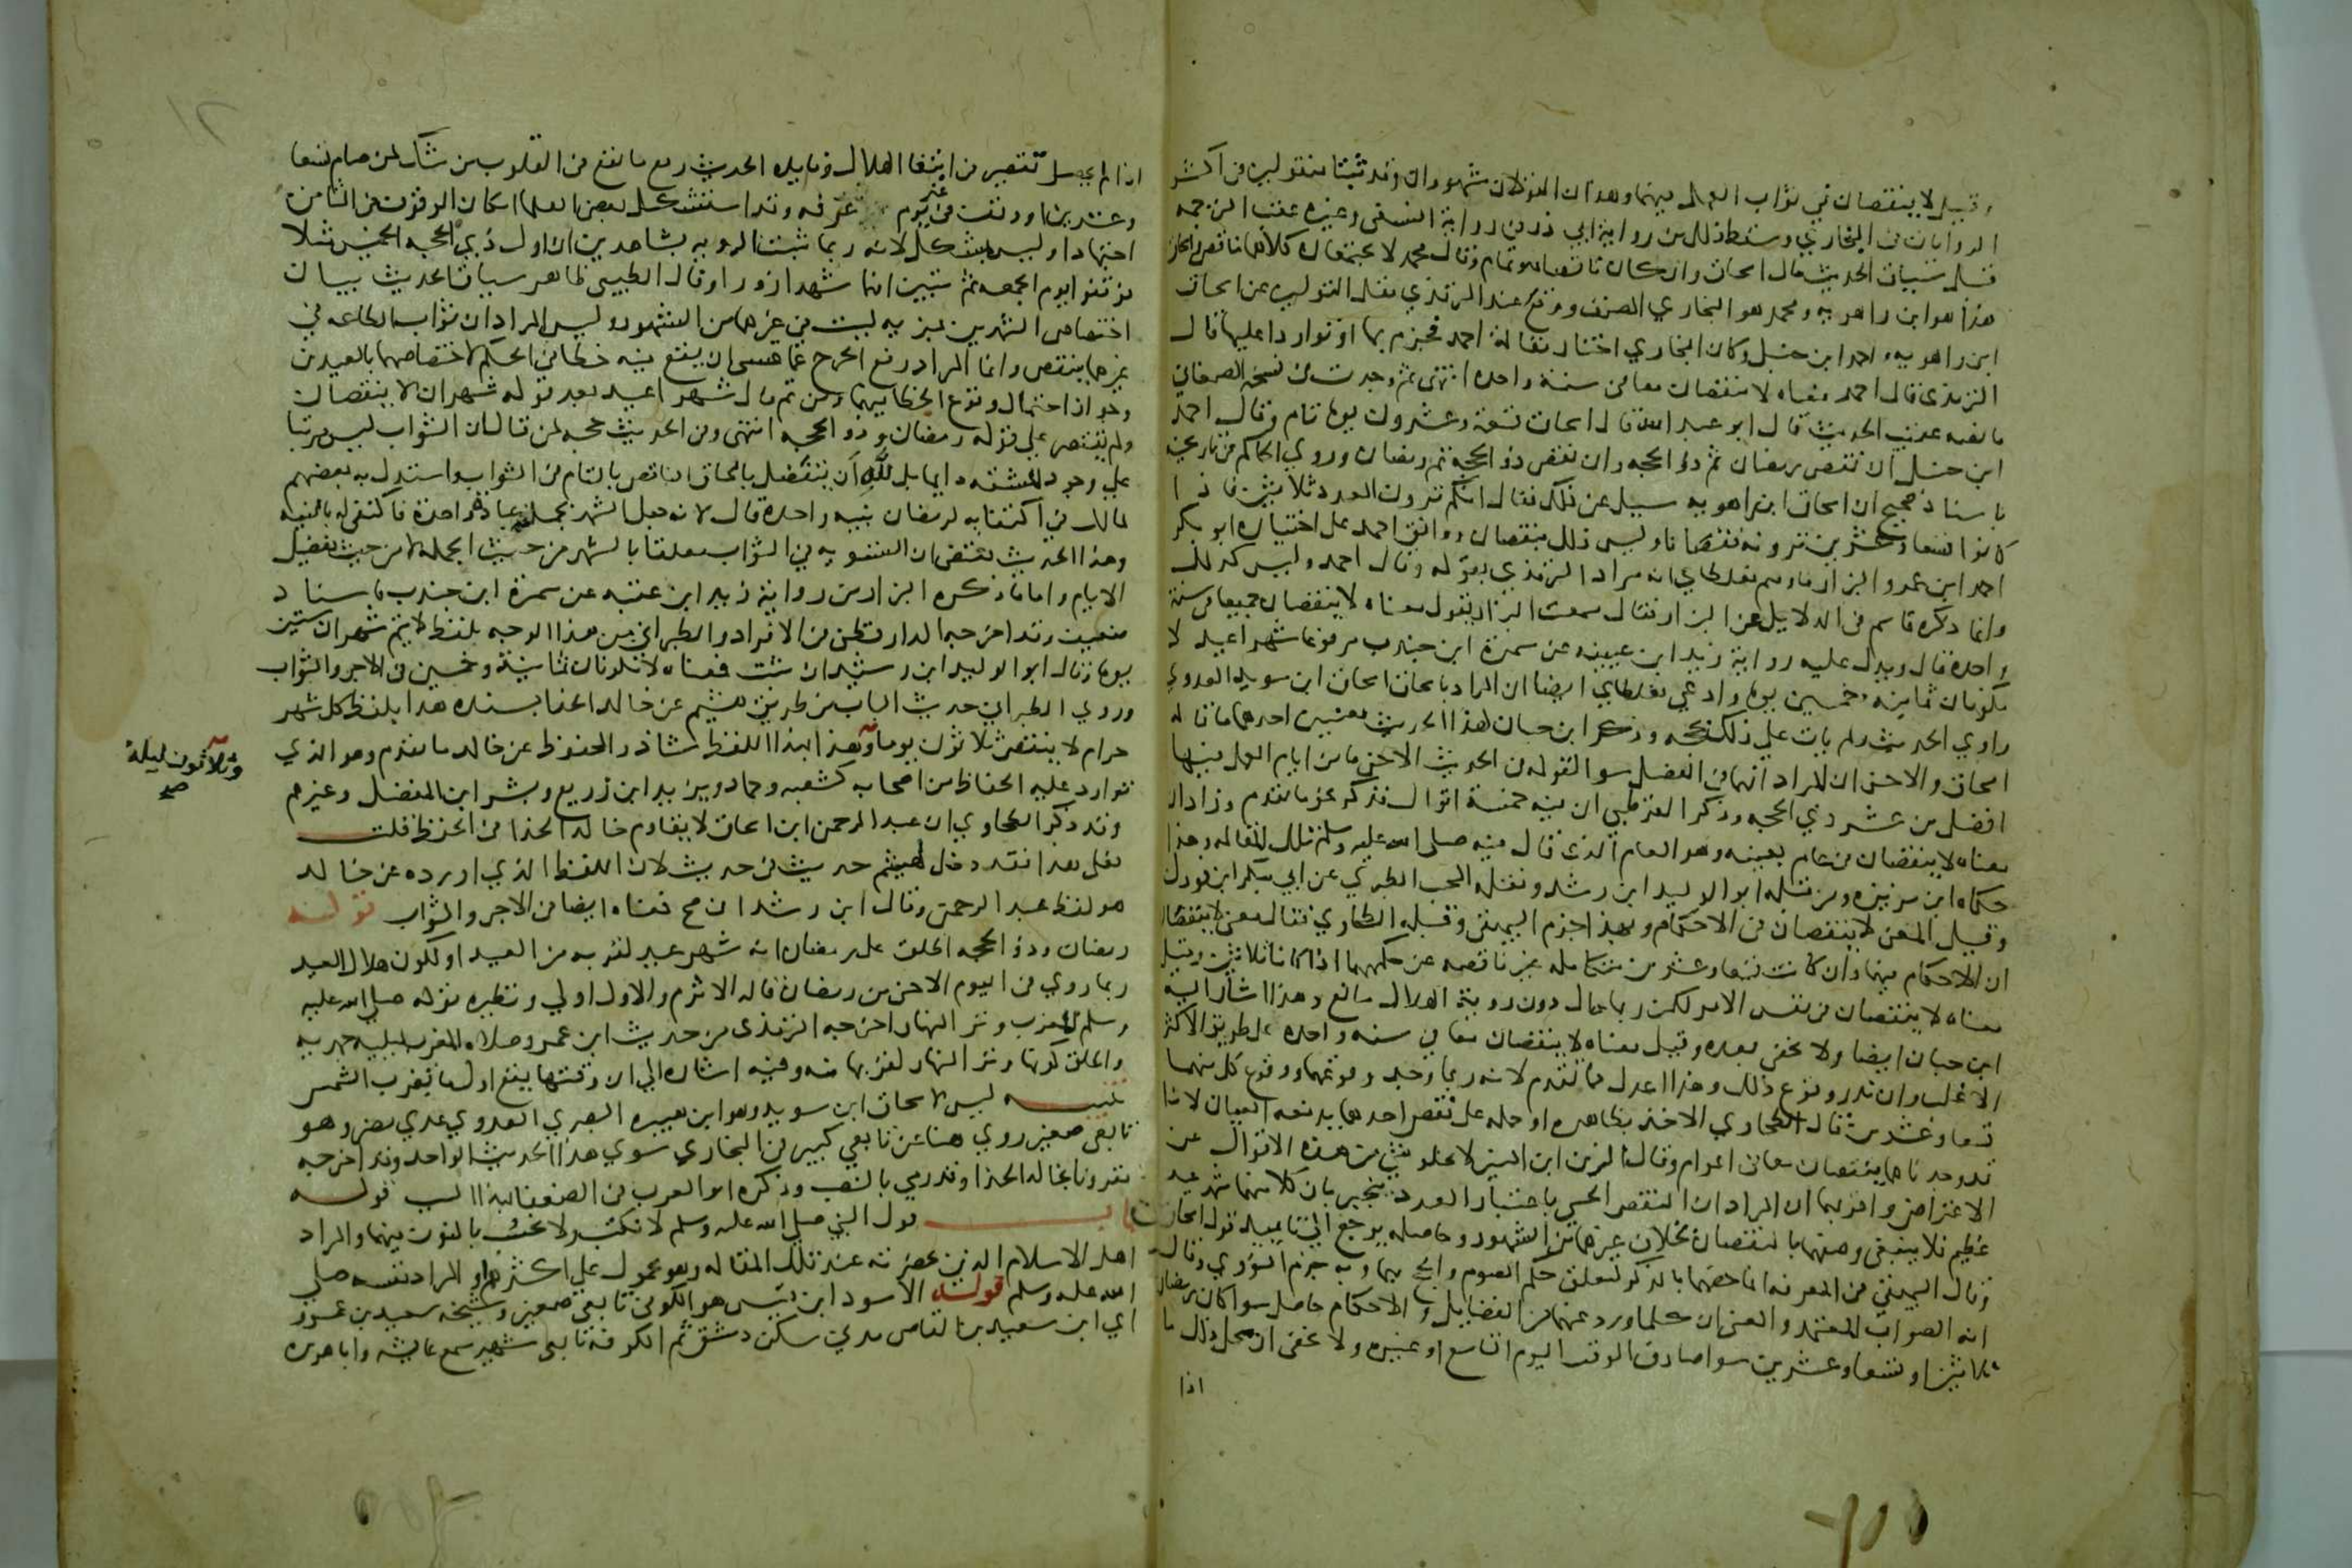 وقيل لا ينقصان في ثواب العمل فيهما وهذان القولان مشهوران وقد ثبتا منقولين في اكثر
الروايات في البخاري وسقط ذلك من رواية ابي ذر من رواية النسفي وغيره عقب الترجمة
قبل سياق الحديث قال اسحاق وان كان ناقصا فهو تمام وقال محمد لا يجتمعان كلاهما ناقص واسحاق
هذا هو ابن راهويه ومحمد هو البخاري المصنف ووقع عند الترمذي نقل القولين عن اسحاق
ابن راهويه واحمد ابن حنبل وكان البخاري اختار مقالة احمد فجزم بها او تواردا عليها قال
الترمذي قال احمد معناه لا ينقصان معا في سنة واحدة انتهى ثم وجدت في نسخة الصغاني
ما نصه عقب الحديث قال ابو عبد الله قال اسحاق تسعة وعشرون يوما تام وقال احمد
ابن حنبل ان نقص رمضان تم ذو الحجه وان نقص ذو الحجة تم رمضان وروي الحاكم في تاريخه
باسناد صحيح ان اسحاق ابن راهويه سيل عن ذلك فقال انكم ترون العدد ثلاثين فاذا
كانوا تسعا وعشرين ترونه نقصانا وليس ذلك بنقصان ووافق احمد على اختياره ابو بكر
احمد ابن عمرو البزار فاوهم مغلطاي انه مراد الترمذي بقوله وقال احمد وليس كذلك
وانما ذكره قاسم في الدلايل عن البزار فقال سمعت البزار يقول معناه لا ينقصان جميعا في سنة
واحدة قال ويدل عليه رواية زيد ابن عيينه عن سمرة ابن جندب مرفوعا شهرا عيد لا
يكونان ثمانية وخمسين يوما وادعي مغلطاي ايضا ان المراد باسحاق اسحاق ابن سويد العدوي
راوي الحديث ولم يات علي ذلك بحجه وذكر ابن حبان لهذا الحديث معنيين احدهما ما قاله
اسحاق والاخر ان المراد انهما في الفضل سوا لقوله في الحديث الاخر ما من ايام العمل فيها
افضل من عشر ذي الحجه وذكر القرطبي ان فيه خمسة اقوال فذكر نحو ما تقدم وزاد ان
معناه لا ينقصان في عام بعينه وهو العام الذي قال فيه صلى الله عليه وسلم تلك المقاله وهذا
حكاه ابن بزيزه ومن قبله ابو الوليد ابن رشد ونقله المحب الطبري عن ابي بكر ابن فورك
وقيل المعنى لا ينقصان في الاحكام وبهذا جزم البيهقي وقبله الطحاوي فقال معنى لا ينقصان
ان الاحكام فيهما وان كانت تسعا وعشرين متكامله غير ناقصه عن حكمهما اذا كانا ثلاثين وقيل
معناه لا ينقصان في نفس الامر لكن ربما حال دون روية الهلال مانع وهذا اشار اليه
ابن حبان ايضا ولا يخفى بعده وقيل معناه لا ينقصان معا في سنه واحدة على طريق الاكثر
الاغلب وان ندر وقوع ذلك وهذا اعدل مما تقدم لانه ربما وجد وقوعهما ووقوع كل منهما
تسعا وعشرين قال الطحاوي الاخذ بظاهره او حمله على نقص احدهما يدفعه العيان لانا
قد وجدناهما ينقصان معا في اعوام وقال الزين ابن المنير لا يخلو شي من هذه الاقوال عن
الاعتراض واقربها ان المراد ان النقص الحسي باعتبار العدد ينجبر بان كلا منهما شهر عيد
عظيم فلا ينبغي وصفهما بالنقصان بخلاف غيرهما من الشهور وحاصله يرجع الى تاييد قول اسحاق
وقال البيهقي في المعرفه انما خصهما بالذكر لتعلق حكم الصوم والحج بهما وبه جزم النووي وقال
انه الصواب المعتمد والمعنى ان كلما ورد عنهما من الفضايل والاحكام حاصل سوا كان رمضان
ثلاثين او تسعا وعشرين سوا صادف الوقوف اليوم التاسع او غيره ولا يخفى ان محل ذلك ما
اذا
اذا لم يحصل تقصير في ابتغا الهلال وفايدة الحديث رفع ما يقع في القلوب من شك لمن صام تسعا
وعشرين او وقف في غير يوم عرفه وقد استشكل بعض العلما امكان الوقوف في الثامن
اجتهادا وليس مشكلا لانه ربما ثبتت الرويه بشاهدين ان اول ذي الحجه الخميس مثلا
فوقفوا يوم الجمعه ثم تبين انهما شهدا زورا وقال الطيبي ظاهر سياق الحديث بيان
اختصاص الشهرين بمزيه ليست في غيرهما من الشهور وليس المراد ان ثواب الطاعه في
غيرهما ينقص وانما المراد رفع الحرج عما عسى ان يقع فيه خطا في الحكم لاختصاصهما بالعيدين
وجواز احتمال وقوع الخطا فيهما ومن ثم قال شهرا عيد بعد قوله شهران لا ينقصان
ولم يقتصر على قوله رمضان وذو الحجه انتهى وفي الحديث حجه لمن قال ان الثواب ليس مرتبا
على وجود المشقه دايما بل لله ان يتفضل بالحاق الناقص بالتام في الثواب واستدل به بعضهم
لمالك في اكتفايه لرمضان بنيه واحدة قال لانه جعل الشهر بجملته عبادة واحدة فاكتفى له بالنيه
وهذا الحديث يقتضي ان التسويه في الثواب معلقا بالشهر من حيث الجمله لا من حيث تفضيل
الايام واما ما ذكره البزار من رواية زيد ابن عقبه عن سمرة ابن جندب باسناد
ضعيف وقد اخرجه الدارقطني في الافراد والطبراني من هذا الوجه بلفظ لا يتم شهران ستين
يوما وقال ابو الوليد ابن رشد ان ثبت فمعناه لا يكونان ثمانية وخمسين في الاجر والثواب
وروي الطبراني حديث الباب من طريق هشيم عن خالد الحذا بسنده هذا بلفظ كل شهر
حرام لا ينقص ثلاثون يوما وهذا بهذا اللفظ شاذ والمحفوظ عن خالد ما تقدم وهو الذي
وثلاثون ليلة
صح
توارد عليه الحفاظ من اصحابه كشعبه وحماد ويزيد ابن زريع وبشر ابن المفضل وغيرهم
وقد ذكر الطحاوي ان عبد الرحمن ابن اسحاق لا يقاوم خالد الحذا في الحفظ قلت
فعلى هذا فقد دخل لهشيم حديث في حديث لان اللفظ الذي اورده عن خالد
هو لفظ عبد الرحمن وقال ابن رشد ان صح فمعناه ايضا في الاجر والثواب قوله
رمضان وذو الحجه اطلق على رمضان انه شهر عيد لقربه من العيد او لكون هلال العيد
ربما روي في اليوم الاخر من رمضان قاله الاثرم والاول اولى ونظيره قوله صلى الله عليه
وسلم المغرب وتر النهار اخرجه الترمذي من حديث ابن عمر وصلاه المغرب ليليه جهريه
واطلق كونها وتر النهار لقربها منه وفيه اشاره الى ان وقتها يقع اول ما تغرب الشمس
تنبيه ليس لاسحاق ابن سويد وهو ابن هبيره البصري العدوي عدي مضر وهو
تابعي صغير روي هنا عن تابعي كبير في البخاري سوي هذا الحديث الواحد وقد اخرجه
مقرونا بخالد الحذا وقد رمي بالنصب وذكره ابو العرب في الضعفا بهذا السبب قوله
باب قول النبي صلى الله عليه وسلم لا نكتب ولا نحسب بالنون فيهما والمراد
اهل الاسلام الذين بحضرته عند تلك المقاله وهو محمول على اكثرهم او المراد نفسه صلى
الله عليه وسلم قوله الاسود ابن قيس هو الكوفي تابعي صغير وشيخه سعيد بن عمرو
اي ابن سعيد بن العاص مدني سكن دمشق ثم الكوفه تابعي شهير سمع عايشه وابا هريره